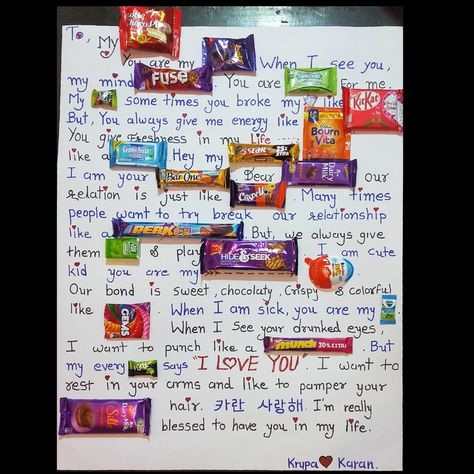 To,
My choco pie You are my When I see you,
my mind FUSE. You are For me.
My some times you broke my like KitKat
But, You always give me energy like Bourn Vita
You give Freshness in my life
like a Center fresh. Hey my 5 STAR
I am your Bar One Dear Dairy Milk our
relation is just like Crispello. Many times
people want to try break our relationship
like a PERK. But, we always give
them & play HIDE & SEEK. I am cute
kid you are my
Our bond is sweet, chocolaty, Crispy & colorful
like GEMS. When I am sick, you are my
When I see your drunked eyes,
I want to punch like a munch 30% EXTRA. But
my every says "I LOVE YOU". I want to
rest in your arms and like to pamper your
hair. 카란 사랑해. I'm really
Dairy Milk Silk blessed to have you in my life.
Krupa Karan.